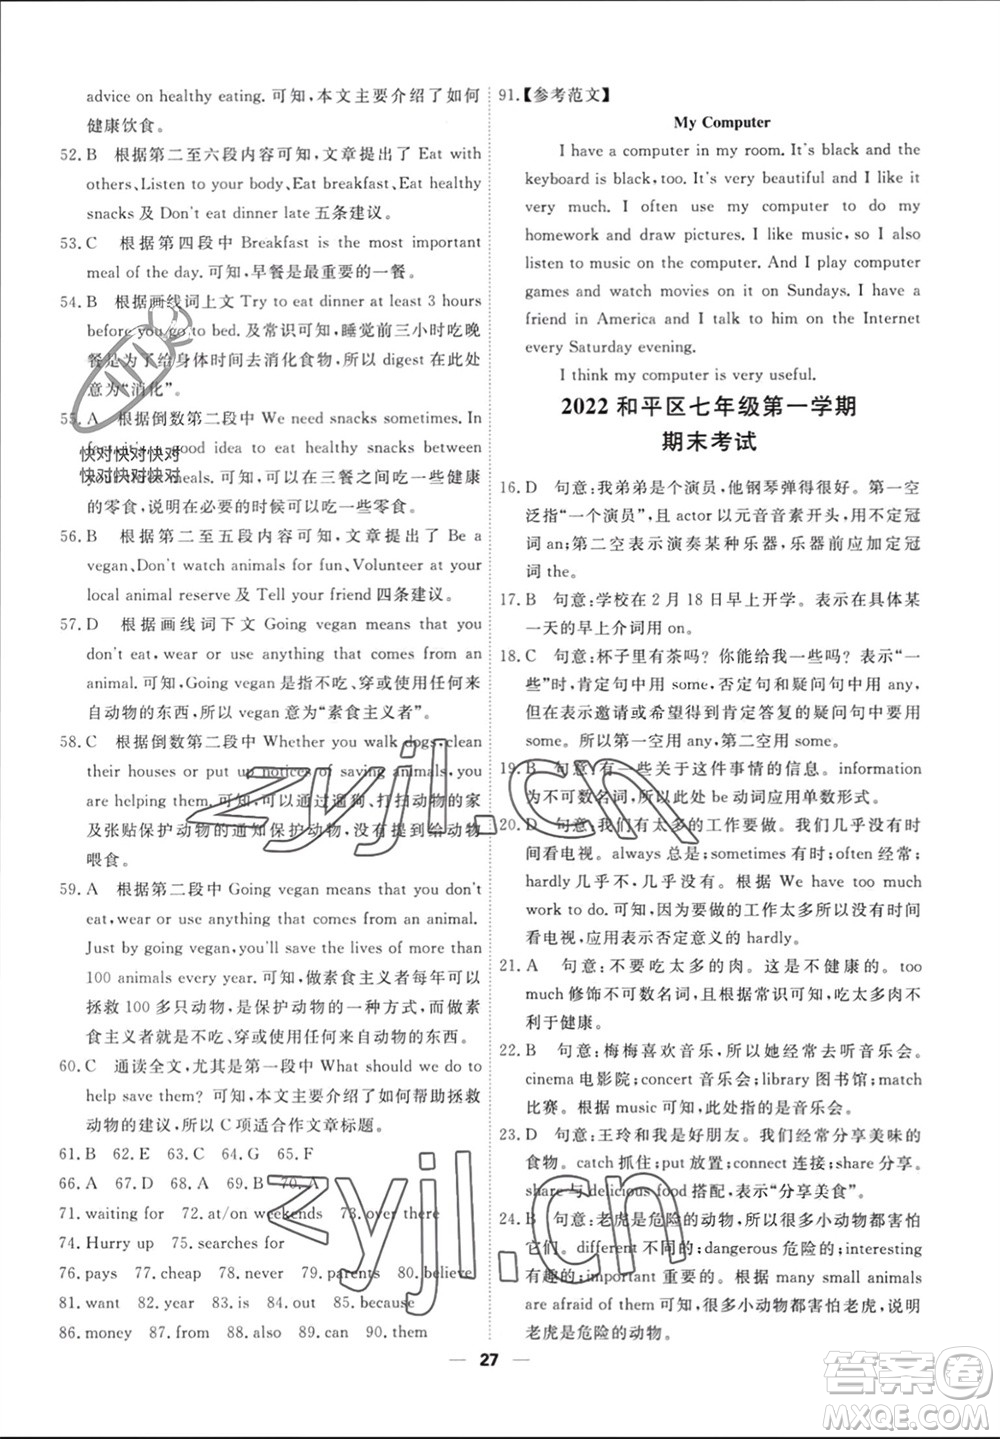 advice on healthy eating. 可知,本文主要介绍了如何
健康饮食。
52. B　根据第二至六段内容可知,文章提出了 Eat with
others, Listen to your body, Eat breakfast, Eat healthy
snacks 及 Don't eat dinner late 五条建议。
53. C　根据第四段中 Breakfast is the most important
meal of the day. 可知,早餐是最重要的一餐。
54. B　根据画线词上文 Try to eat dinner at least 3 hours
before you go to bed. 及常识可知,睡觉前三小时吃晚
餐是为了给身体时间去消化食物,所以 digest 在此处
意为“消化”。
55. A　根据倒数第二段中 We need snacks sometimes. In
fact, it's good idea to eat healthy snacks between
meals. 可知,可以在三餐之间吃一些健康
的零食,说明在必要的时候可以吃一些零食。
快对快对快对
快对快对快对
56. B　根据第二至五段内容可知,文章提出了 Be a
vegan, Don't watch animals for fun, Volunteer at your
local animal reserve 及 Tell your friend 四条建议。
57. D　根据画线词下文 Going vegan means that you
don't eat, wear or use anything that comes from an
animal. 可知,Going vegan 是指不吃、穿或使用任何来
自动物的东西,所以 vegan 意为“素食主义者”。
58. C　根据倒数第二段中 Whether you walk dogs, clean
their houses or put up notices of saving animals, you
are helping them. 可知,可以通过遛狗、打扫动物的家
及张贴保护动物的通知保护动物,没有提到给动物
喂食。
59. A　根据第二段中 Going vegan means that you don't
eat, wear or use anything that comes from an animal.
Just by going vegan, you'll save the lives of more than
100 animals every year. 可知,做素食主义者每年可以
拯救 100 多只动物,是保护动物的一种方式,而做素
食主义者就是不吃、穿或使用任何来自动物的东西。
60. C　通读全文,尤其是第一段中 What should we do to
help save them? 可知,本文主要介绍了如何帮助拯救
动物的建议,所以 C 项适合作文章标题。
61. B　62. E　63. C　64. G　65. F
66. A　67. D　68. A　69. B　70. A
71. waiting for　72. at/on weekends　73. over there
74. Hurry up　75. searches for
76. pays　77. cheap　78. never　79. parents　80. believe
81. want　82. year　83. is　84. out　85. because
86. money　87. from　88. also　89. can　90. them
91.【参考范文】
My Computer
I have a computer in my room. It's black and the
keyboard is black, too. It's very beautiful and I like it
very much. I often use my computer to do my
homework and draw pictures. I like music, so I also
listen to music on the computer. And I play computer
games and watch movies on it on Sundays. I have a
friend in America and I talk to him on the Internet
every Saturday evening.
I think my computer is very useful.
2022 和平区七年级第一学期
期末考试
16. D　句意:我弟弟是个演员,他钢琴弹得很好。第一空
泛指“一个演员”,且 actor 以元音音素开头,用不定冠
词 an;第二空表示演奏某种乐器,乐器前应用定冠
词 the。
17. B　句意:学校在 2 月 18 日早上开学。表示在具体某
一天的早上介词用 on。
18. C　句意:杯子里有茶吗?你能给我一些吗?表示“一
些”时,肯定句中用 some,否定句和疑问句中用 any,
但在表示邀请或希望得到肯定答复的疑问句中用
some。所以第一空用 any,第二空用 some。
19. B　句意:有一些关于这件事情的信息。information
为不可数名词,所以此处 be 动词应用单数形式。
20. D　句意:我们有太多的工作要做。我们几乎没有时
间看电视。always 总是;sometimes 有时;often 经常;
hardly 几乎不,几乎没有。根据 We have too much
work to do. 可知,因为要做的工作太多所以没有时间
看电视,应用表示否定意义的 hardly。
21. A　句意:不要吃太多的肉。这是不健康的。too
much 修饰不可数名词,且根据常识可知,吃太多肉不
利于健康。
22. B　句意:梅梅喜欢音乐,所以她经常去听音乐会。
cinema 电影院;concert 音乐会;library 图书馆;match
比赛。根据 music 可知,此处指的是音乐会。
23. D　句意:王玲和我是好朋友。我们经常分享美味的
食物。catch 抓住;put 放置;connect 连接;share 分享。
share 与 delicious food 搭配,表示“分享美食”。
24. B　句意:老虎是危险的动物,所以很多小动物都害怕
它们。different 不同的;dangerous 危险的;
有趣的;important 重要的。根据 many small animals
are afraid of them 可知,很多小动物都害怕老虎,说明
老虎是危险的动物。
27
zyjl.cn
zyjl.cn
答案圈
MXQE.COM